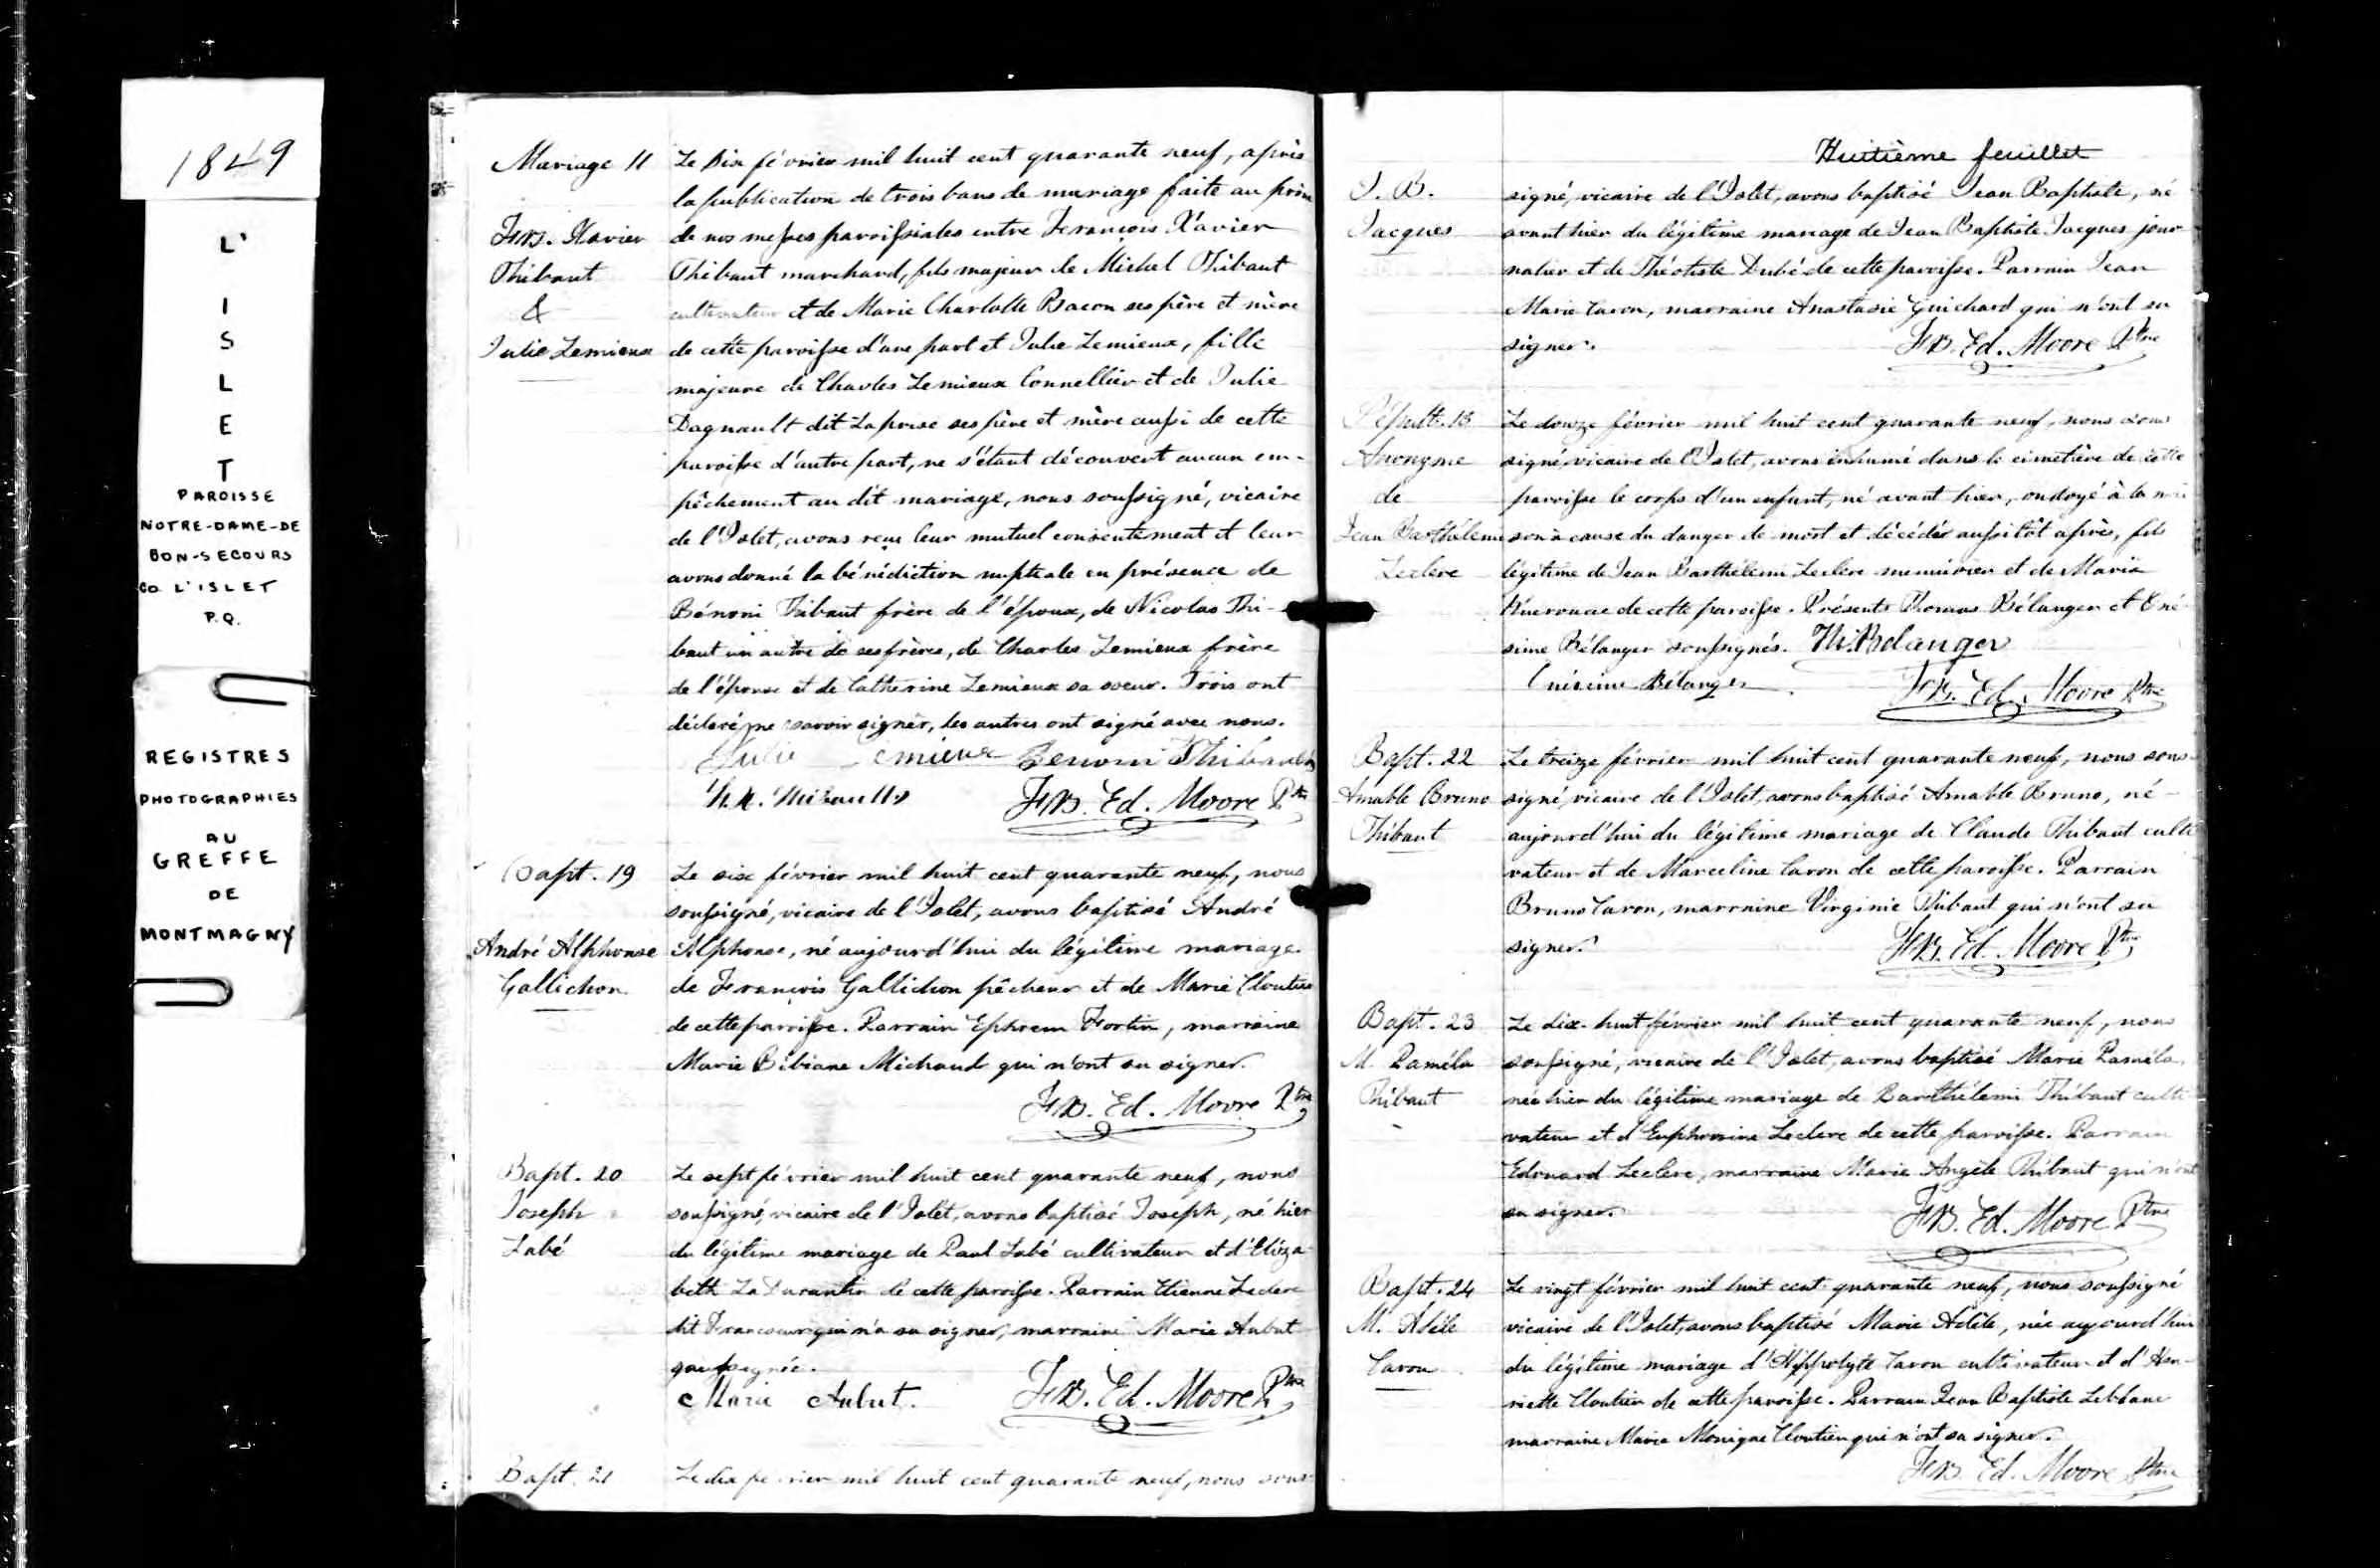 1849
L'
I
S
L
E
T
PAROISSE
NOTRE-DAME-DE
BON-SECOURS
CO L'ISLET
P.Q.
REGISTRES
PHOTOGRAPHIES
AU
GREFFE
DE
MONTMAGNY
Mariage 11
Frs. Xavier
Thibaut
&
Julie Lemieux
Le six février mil huit cent quarante neuf, après
la publication de trois bans de mariage faite au prône
de nos messes paroissiales entre François Xavier
Thibaut marchand, fils majeur de Michel Thibaut
cultivateur et de Marie Charlotte Bacon ses père et mère
de cette paroisse d'une part et Julie Lemieux, fille
majeure de Charles Lemieux Connellier et de Julie
Dagnault dit Laprise ses père et mère aussi de cette
paroisse d'autre part, ne s'étant découvert aucun em-
pêchement au dit mariage, nous soussigné, vicaire
de l'Islet, avons reçu leur mutuel consentement et leur
avons donné la bénédiction nuptiale en présence de
Bénoni Thibaut frère de l'époux, de Nicolas Thi-
baut un autre de ses frères, de Charles Lemieux frère
de l'épouse et de Catherine Lemieux sa soeur. Trois ont
déclaré ne savoir signer, les autres ont signé avec nous.
Julie Lemieux Benoni Thibault
F.X. Thibault
Frs. Ed. Moore Ptre
Bapt. 19
André Alphonse
Gallichon
Le six février mil huit cent quarante neuf, nous
soussigné, vicaire de l'Islet, avons baptisé André
Alphonse, né aujourd'hui du légitime mariage
de François Gallichon pêcheur et de Marie Cloutier
de cette paroisse. Parrain Ephrem Fortin, marraine
Marie Bibiane Michaud qui n'ont su signer.
Frs. Ed. Moore Ptre
Bapt. 20
Joseph
Labé
Le sept février mil huit cent quarante neuf, nous
soussigné, vicaire de l'Islet, avons baptisé Joseph, né hier
du légitime mariage de Paul Labé cultivateur et d'Eliza-
beth La Durantin de cette paroisse. Parrain Etienne Leclerc
dit Francoeur qui n'a su signer, marraine Marie Aubut
soussignée.
Marie Aubut.
Frs. Ed. Moore Ptre
Bapt. 21
Le dix février mil huit cent quarante neuf, nous sous-
Huitième feuillet
J. B.
Jacques
signé, vicaire de l'Islet, avons baptisé Jean Baptiste, né
avant hier du légitime mariage de Jean Baptiste Jacques jour-
nalier et de Théotiste Dubé de cette paroisse. Parrain Jean
Marie Caron, marraine Anastasie Guichard qui n'ont su
signer.
Frs. Ed. Moore Ptre
Sépult. 13
Anonyme
de
Jean Barthélemi
Leclerc
Le douze février mil huit cent quarante neuf, nous sous
signé, vicaire de l'Islet, avons inhumé dans le cimetière de cette
paroisse le corps d'un enfant, né avant hier, ondoyé à la mai
son à cause du danger de mort et décédé aussitôt après, fils
légitime de Jean Barthélemi Leclerc menuisier et de Marie
de cette paroisse. Présents Thomas Bélanger et Oné-
sime Bélanger soussignés. Th. Belanger
Onésime Bélanger
Frs. Ed. Moore Ptre
Bapt. 22
Amable Bruno
Thibaut
Le treize février mil huit cent quarante neuf, nous sous-
signé, vicaire de l'Islet, avons baptisé Amable Bruno, né
aujourd'hui du légitime mariage de Claude Thibaut culti
vateur et de Marceline Caron de cette paroisse. Parrain
Bruno Caron, marraine Virginie Thibaut qui n'ont su
signer.
Frs. Ed. Moore Ptre
Bapt. 23
M. Paméla
Thibaut
Le dix-huit février mil huit cent quarante neuf, nous
soussigné, vicaire de l'Islet, avons baptisé Marie Paméla,
née hier du légitime mariage de Barthélemi Thibaut culti
vateur et d'Euphrosine Leclerc de cette paroisse. Parrain
Edouard Leclerc, marraine Marie Angèle Thibaut qui n'ont
su signer.
Frs. Ed. Moore Ptre
Bapt. 24
M. Adèle
Caron
Le vingt février mil huit cent quarante neuf, nous soussigné
vicaire de l'Islet, avons baptisé Marie Adèle, née aujourd'hui
du légitime mariage d'Hippolyte Caron cultivateur et d'Hen-
riette Cloutier de cette paroisse. Parrain Jean Baptiste Leblanc
marraine Marie Monique Cloutier qui n'ont su signer.
Frs. Ed. Moore Ptre